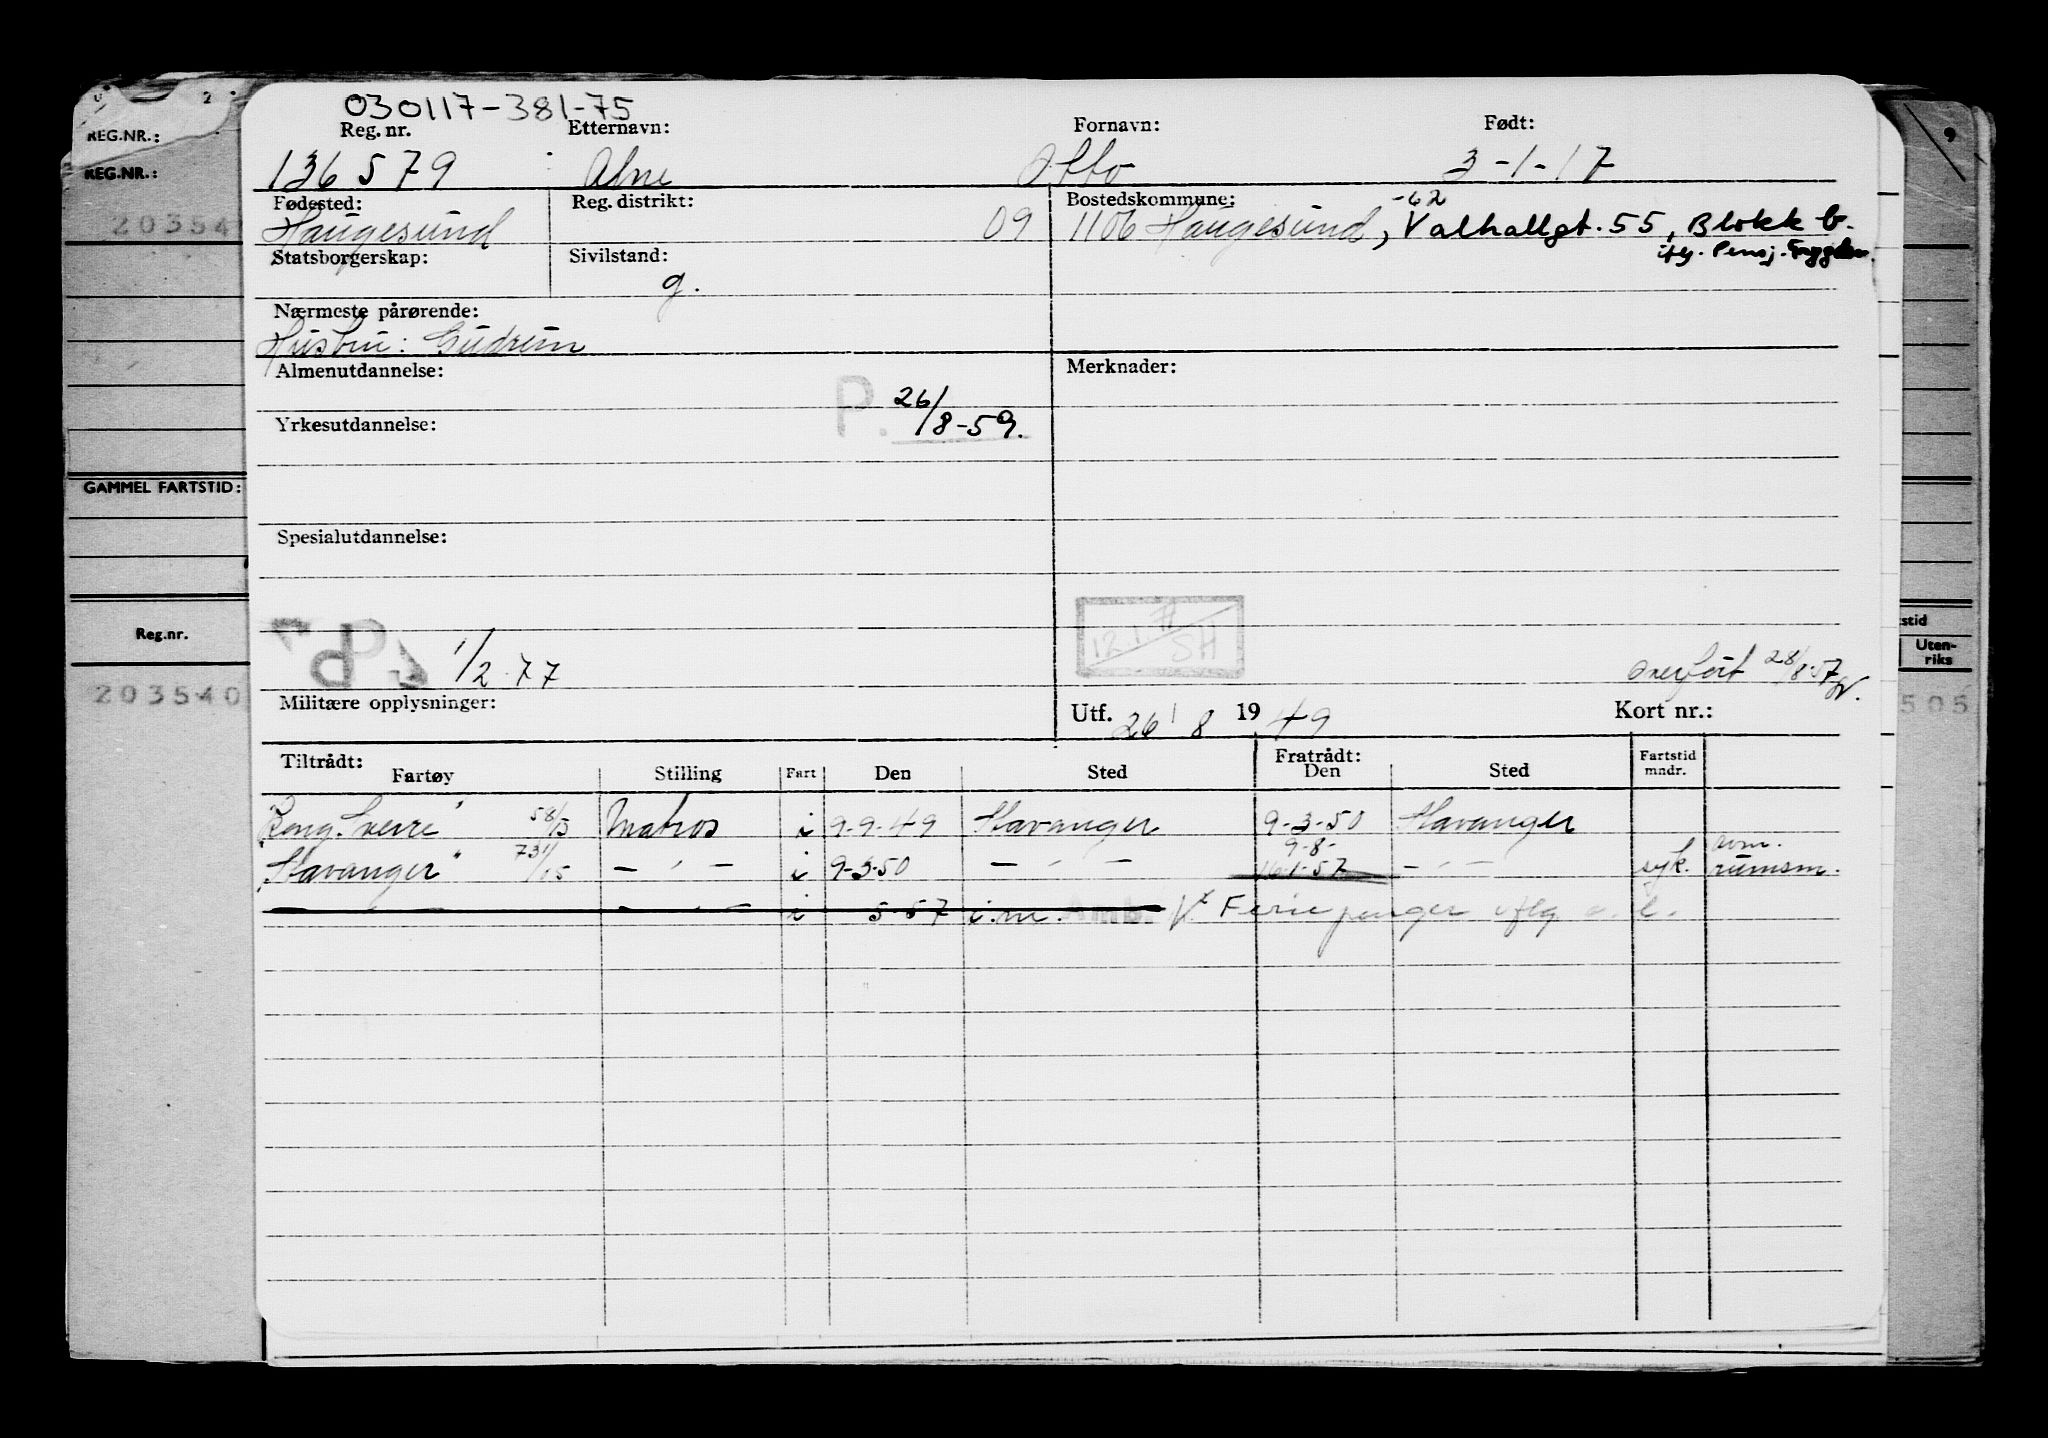 REG.NR.:
REG.NR.:
20354
GAMMEL FARTSTID:
Reg.nr.
203540
030117-381-75
Reg. nr. Etternavn: Fornavn: Født:
136579 Alne Otto 3-1-17
Fødested: Reg. distrikt: Bostedskommune: -62
Haugesund 09 1106 Haugesund, Valhallgt. 55, Blokk b.
Statsborgerskap: Sivilstand:
g.
Nærmeste pårørende:
Hustru: Gudrun
Almenutdannelse: Merknader:
P. 26/8-59.
Yrkesutdannelse:
Spesialutdannelse:
1/2 77
12.1.77 SH
overført 28/8-57
Militære opplysninger: Utf. 26/8 1949 Kort nr.:
Tiltrådt: Fratrådt: Fartstid
Fartøy Stilling Fart Den Sted Den Sted mndr.
"Kong Sverre" 58/15 Matros i 9-9-49 Stavanger 9-3-50 Stavanger
9-8- avm.
"Stavanger" 731/15 — " — i 9-3-50 — " — 16 1-57 — " — syk. rumsm.
— " — i 5-57 i.m. Amb. Feriepenger
stid
Uten-
riks
505